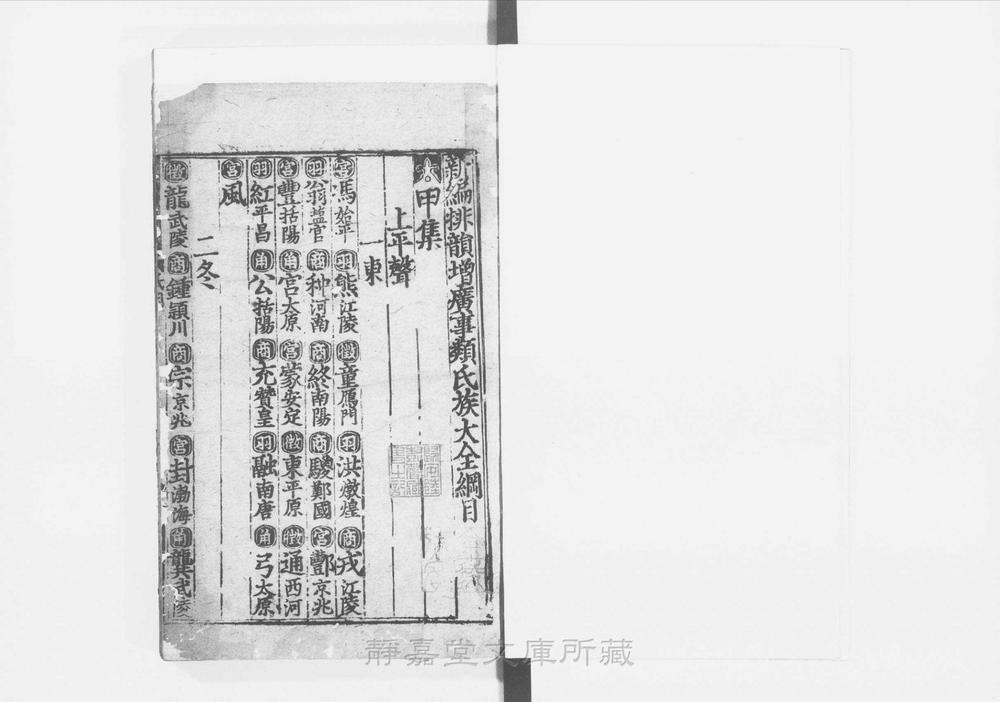 新編排韻增廣事類氏族大全綱目
甲集
上平聲
一東
宮馮始平羽熊江陵徵童鴈門羽洪燉煌商戎江陵
羽翁鹽官商种河南商終南陽商鬷鄭國宮酆京兆
宮豐括陽角宮太原宮蒙安定徵東平原徵通西河
羽紅平昌角公括陽商充贊皇羽融南唐角弓太原
宮風
二冬
徵龍武陵商鍾潁川商宗京兆宮封渤海角龔武陵
靜嘉堂文庫所藏